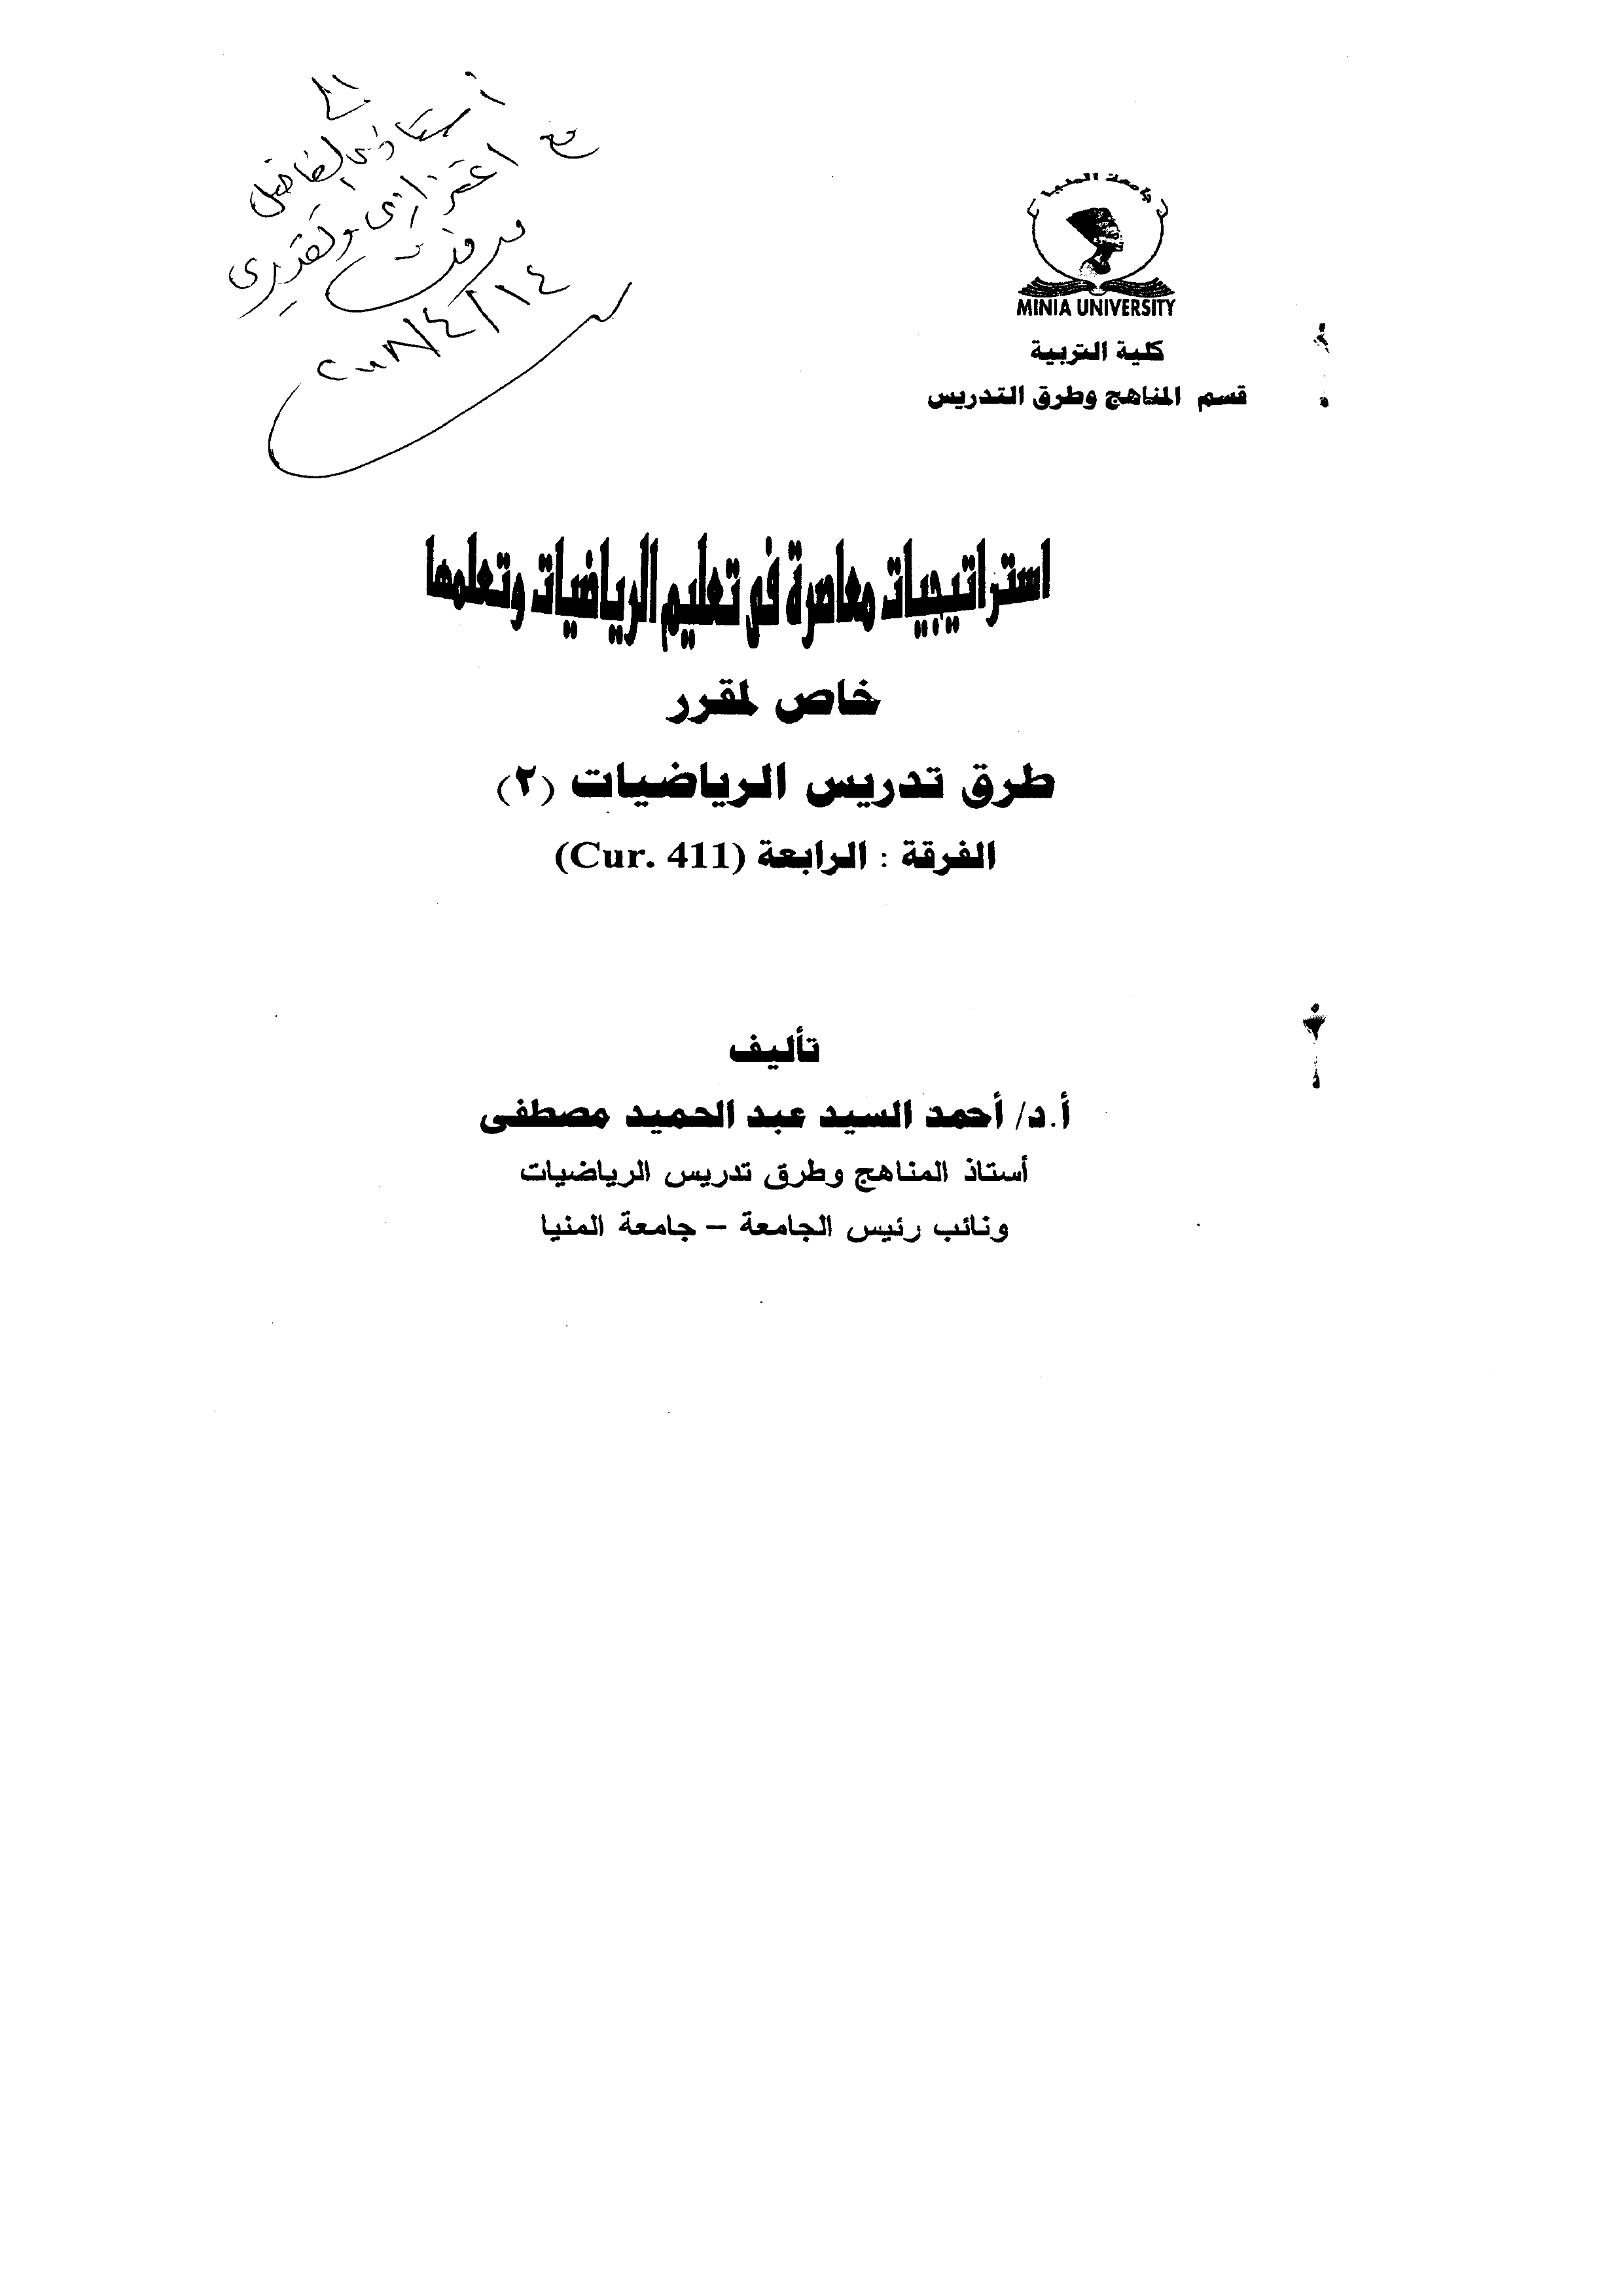 جامعة المنيا
MINIA UNIVERSITY
كلية التربية
قسم المناهج وطرق التدريس
أستاذى الفاضل
مع اعتزازى وتقديرى
استراتيجيات معاصرة فى تعليم الرياضيات وتعلمها
خاص لمقرر
طرق تدريس الرياضيات (٢)
الفرقة : الرابعة (Cur. 411)
تأليف
أ.د/ أحمد السيد عبد الحميد مصطفى
أستاذ المناهج وطرق تدريس الرياضيات
ونائب رئيس الجامعة – جامعة المنيا